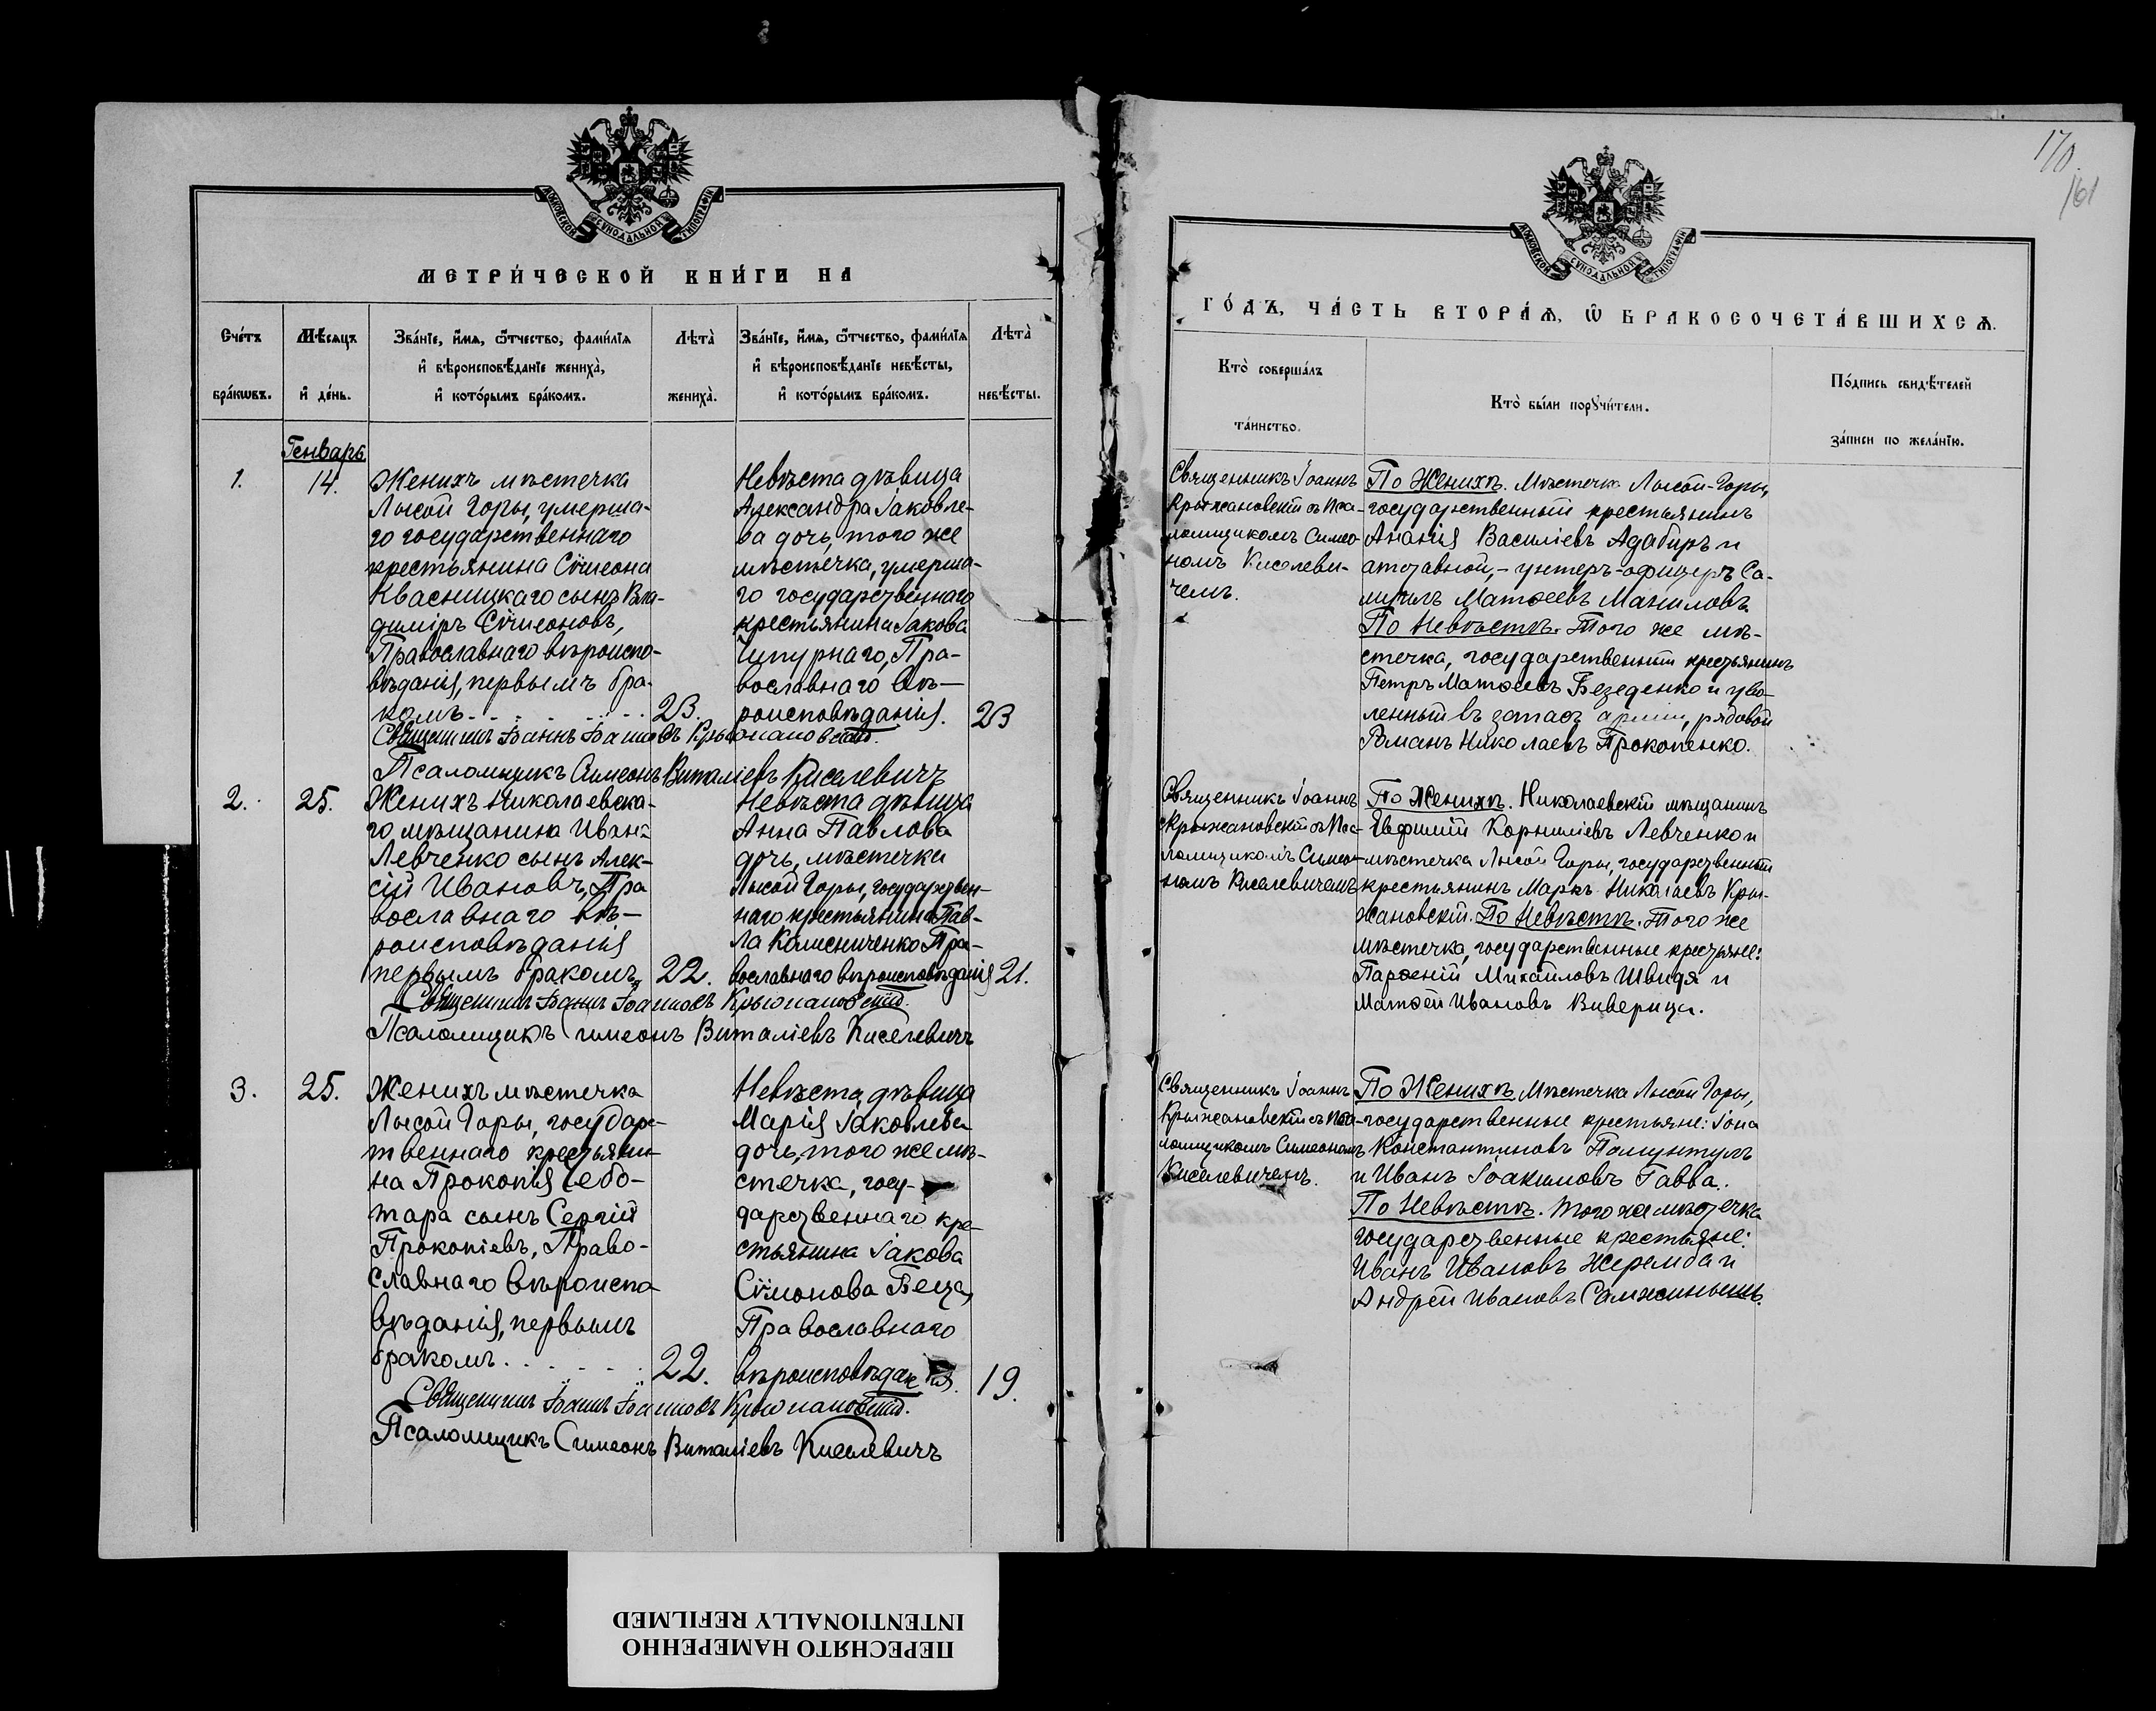 МОСКОВСКОЙ СѴНОДАЛЬНОЙ ТИПОГРАФІИ
МЕТРИ́ЧЕСКОЙ КНИ́ГИ НА
Сче́тъ бра́кѡвъ.
Мѣ́сяцъ и҆ де́нь.
Зва́нїе, и҆́мѧ, ѻ҆́тчество, фами́лїѧ
и҆ вѣроисповѣ́данїе жениха̀,
и҆ кото́рымъ бра́комъ.
Лѣта̀ жениха̀.
Зва́нїе, и҆́мѧ, ѻ҆́тчество, фами́лїѧ
и҆ вѣроисповѣ́данїе невѣ́сты,
и҆ кото́рымъ бра́комъ.
Лѣта̀ невѣ́сты.
Генварь
1.
14.
Женихъ мѣстечка
Лысой Горы, умерша-
го государственнаго
крестьянина Сѵмеона
Квасницкаго сынъ Вла-
диміръ Сѵмеоновъ,
Православнаго вѣроиспо-
вѣданія, первымъ бра-
комъ
23.
Невѣста дѣвица
Александра Іаковле-
ва дочь, того же
мѣстечка, умерша-
го государственнаго
крестьянина Іакова
Чипурнаго, Пра-
вославнаго вѣ-
роисповѣданія.
23
Священникъ Іоаннъ Іоанновъ Крыжановскій.
Псаломщикъ Симеонъ Виталіевъ Киселевичъ
2.
25.
Женихъ Николаевска-
го мѣщанина Ивана
Левченко сынъ Алек-
сій Ивановъ, Пра
вославнаго вѣ-
роисповѣданія
первымъ бракомъ,
22.
Невѣста дѣвица
Анна Павлова
дочь, мѣстечка
Лысой Горы, государствен-
наго крестьянина Пав-
ла Колесниченко Пра-
вославнаго вѣроисповѣданія
21.
Священникъ Іоаннъ Іоанновъ Крыжановскій.
Псаломщикъ Симеонъ Виталіевъ Киселевичъ
3.
25.
Женихъ мѣстечка
Лысой Горы, государс-
твеннаго крестьяни-
на Прокопія Чебо-
тара сынъ Сергій
Прокопіевъ, Право-
славнаго вѣроиспо
вѣданія, первымъ
бракомъ
22.
Невѣста, дѣвица
Марія Іаковлева
дочь, того же мѣ-
стечка, госу-
дарственнаго кре-
стьянина Іакова
Сѵмонова Беца,
Православнаго
вѣроисповѣданія.
19.
Священникъ Іоаннъ Іоанновъ Крыжановскій.
Псаломщикъ Симеонъ Виталіевъ Киселевичъ
170.
161
МОСКОВСКОЙ СѴНОДАЛЬНОЙ ТИПОГРАФІИ
ГО́ДЪ, ЧА́СТЬ ВТОРА́Ѧ, Ѡ҆ БРАКОСОЧЕТА́ВШИХСѦ.
Кто̀ соверша́лъ
та́инство.
Кто̀ бы́ли порꙋчи́тели.
По́дпись свидѣ́телей
за́писи по жела́нїю.
Священникъ Іоаннъ
Крыжановскій съ Пса-
ломщикомъ Симео-
номъ Киселеви-
чемъ.
По Женихѣ. Мѣстечка Лысой-Горы,
государственный крестьянинъ
Ананія Василіевъ Адабиръ и
отставной,- унтеръ-офицеръ Са-
муилъ Матѳеевъ Маниловъ
По Невѣстѣ. Того же мѣ-
стечка, государственный крестьянинъ
Петръ Матѳеевъ Безеденко и уво-
ленный въ запасъ арміи, рядовой
Романъ Николаевъ Прокопенко.
Священникъ Іоаннъ
Крыжановскій съ Пса-
ломщикомъ Симео-
номъ Киселевичемъ
По Женихѣ. Николаевскій мѣщанинъ
Евфимій Корниліевъ Левченко и
мѣстечка Лысой Горы, государственный
крестьянинъ Маркъ Николаевъ Кры-
жановскій. По Невѣстѣ. Того же
мѣстечка, государственные крестьяне:
Парѳеній Михайловъ Швидя и
Матѳей Ивановъ Виверица.
Священникъ Іоаннъ
Крыжановскій съ Пса-
ломщикомъ Симеономъ
Киселевичемъ.
По Женихѣ. Мѣстечка Лысой Горы,
государственные крестьяне: Іона
Константиновъ Помунтулъ
и Иванъ Іоакимовъ Гавва.
По Невѣстѣ. Того же мѣстечка
государственные крестьяне:
Иванъ Ивановъ Жеремба и
Андрей Ивановъ
ПЕРЕСНЯТО НАМЕРЕННО
INTENTIONALLY REFILMED